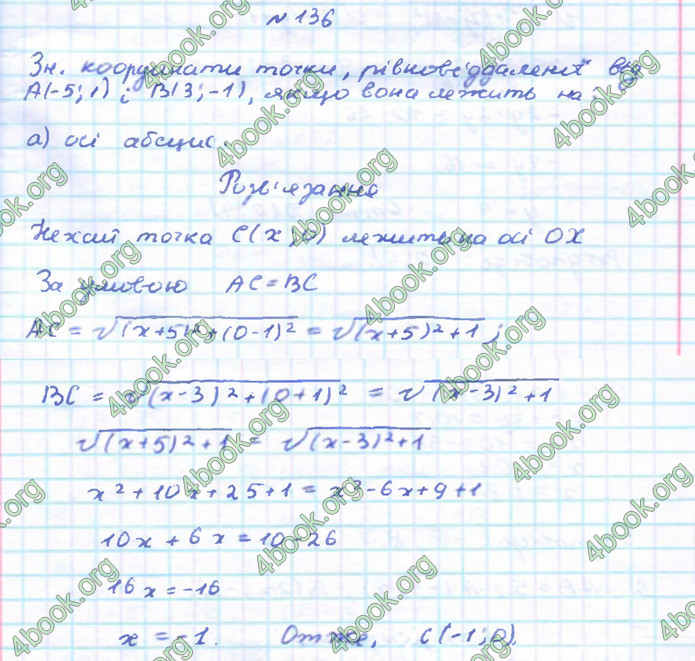 № 136
Зн. координати точки, рівновіддаленої від
A(-5; 1) і B(3; -1), якщо вона лежить на :
а) осі абсцис.
Розв'язання
Нехай точка C(x; 0) лежить на осі OX
За умовою AC = BC
AC = √(x+5)²+(0-1)² = √(x+5)²+1 ;
BC = √(x-3)²+(0+1)² = √(x-3)²+1
√(x+5)²+1 = √(x-3)²+1
x²+10x+25+1 = x²-6x+9+1
10x + 6x = 10-26
16x = -16
x = -1. Отже, C(-1; 0).
4book.org